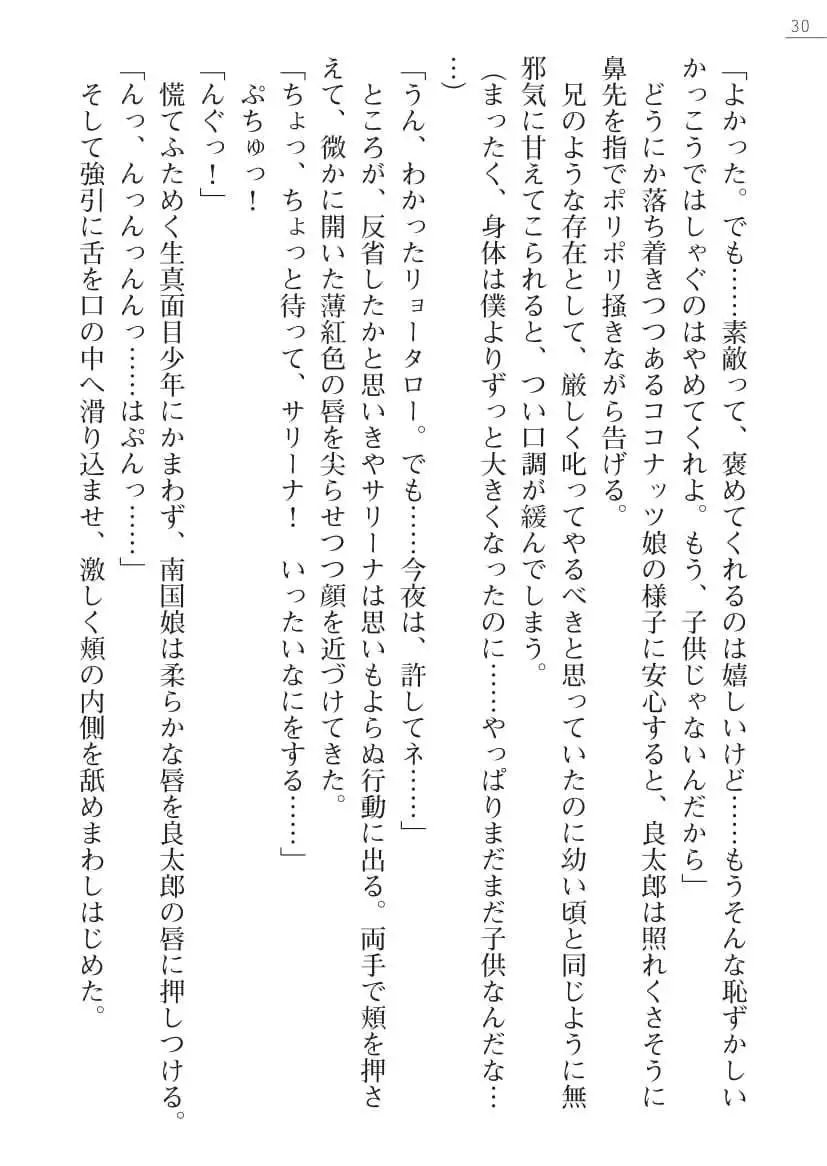 30
「よかった。でも……素敵って、褒めてくれるのは嬉しいけど……もうそんな恥ずかしい
かっこうではしゃぐのはやめてくれよ。もう、子供じゃないんだから」
どうにか落ち着きつつあるココナッツ娘の様子に安心すると、良太郎は照れくさそうに
鼻先を指でポリポリ掻きながら告げる。
兄のような存在として、厳しく叱ってやるべきと思っていたのに幼い頃と同じように無
邪気に甘えてこられると、つい口調が緩んでしまう。
（まったく、身体は僕よりずっと大きくなったのに……やっぱりまだまだ子供なんだな…
…）
「うん、わかったリョータロー。でも……今夜は、許してネ……」
ところが、反省したかと思いきやサリーナは思いもよらぬ行動に出る。両手で頬を押さ
えて、微かに開いた薄紅色の唇を尖らせつつ顔を近づけてきた。
「ちょっ、ちょっと待って、サリーナ！　いったいなにをする……」
ぷちゅっ！
「んぐっ！」
慌てふためく生真面目少年にかまわず、南国娘は柔らかな唇を良太郎の唇に押しつける。
「んっ、んっんっんんっ……はぷんっ……」
そして強引に舌を口の中へ滑り込ませ、激しく頬の内側を舐めまわしはじめた。